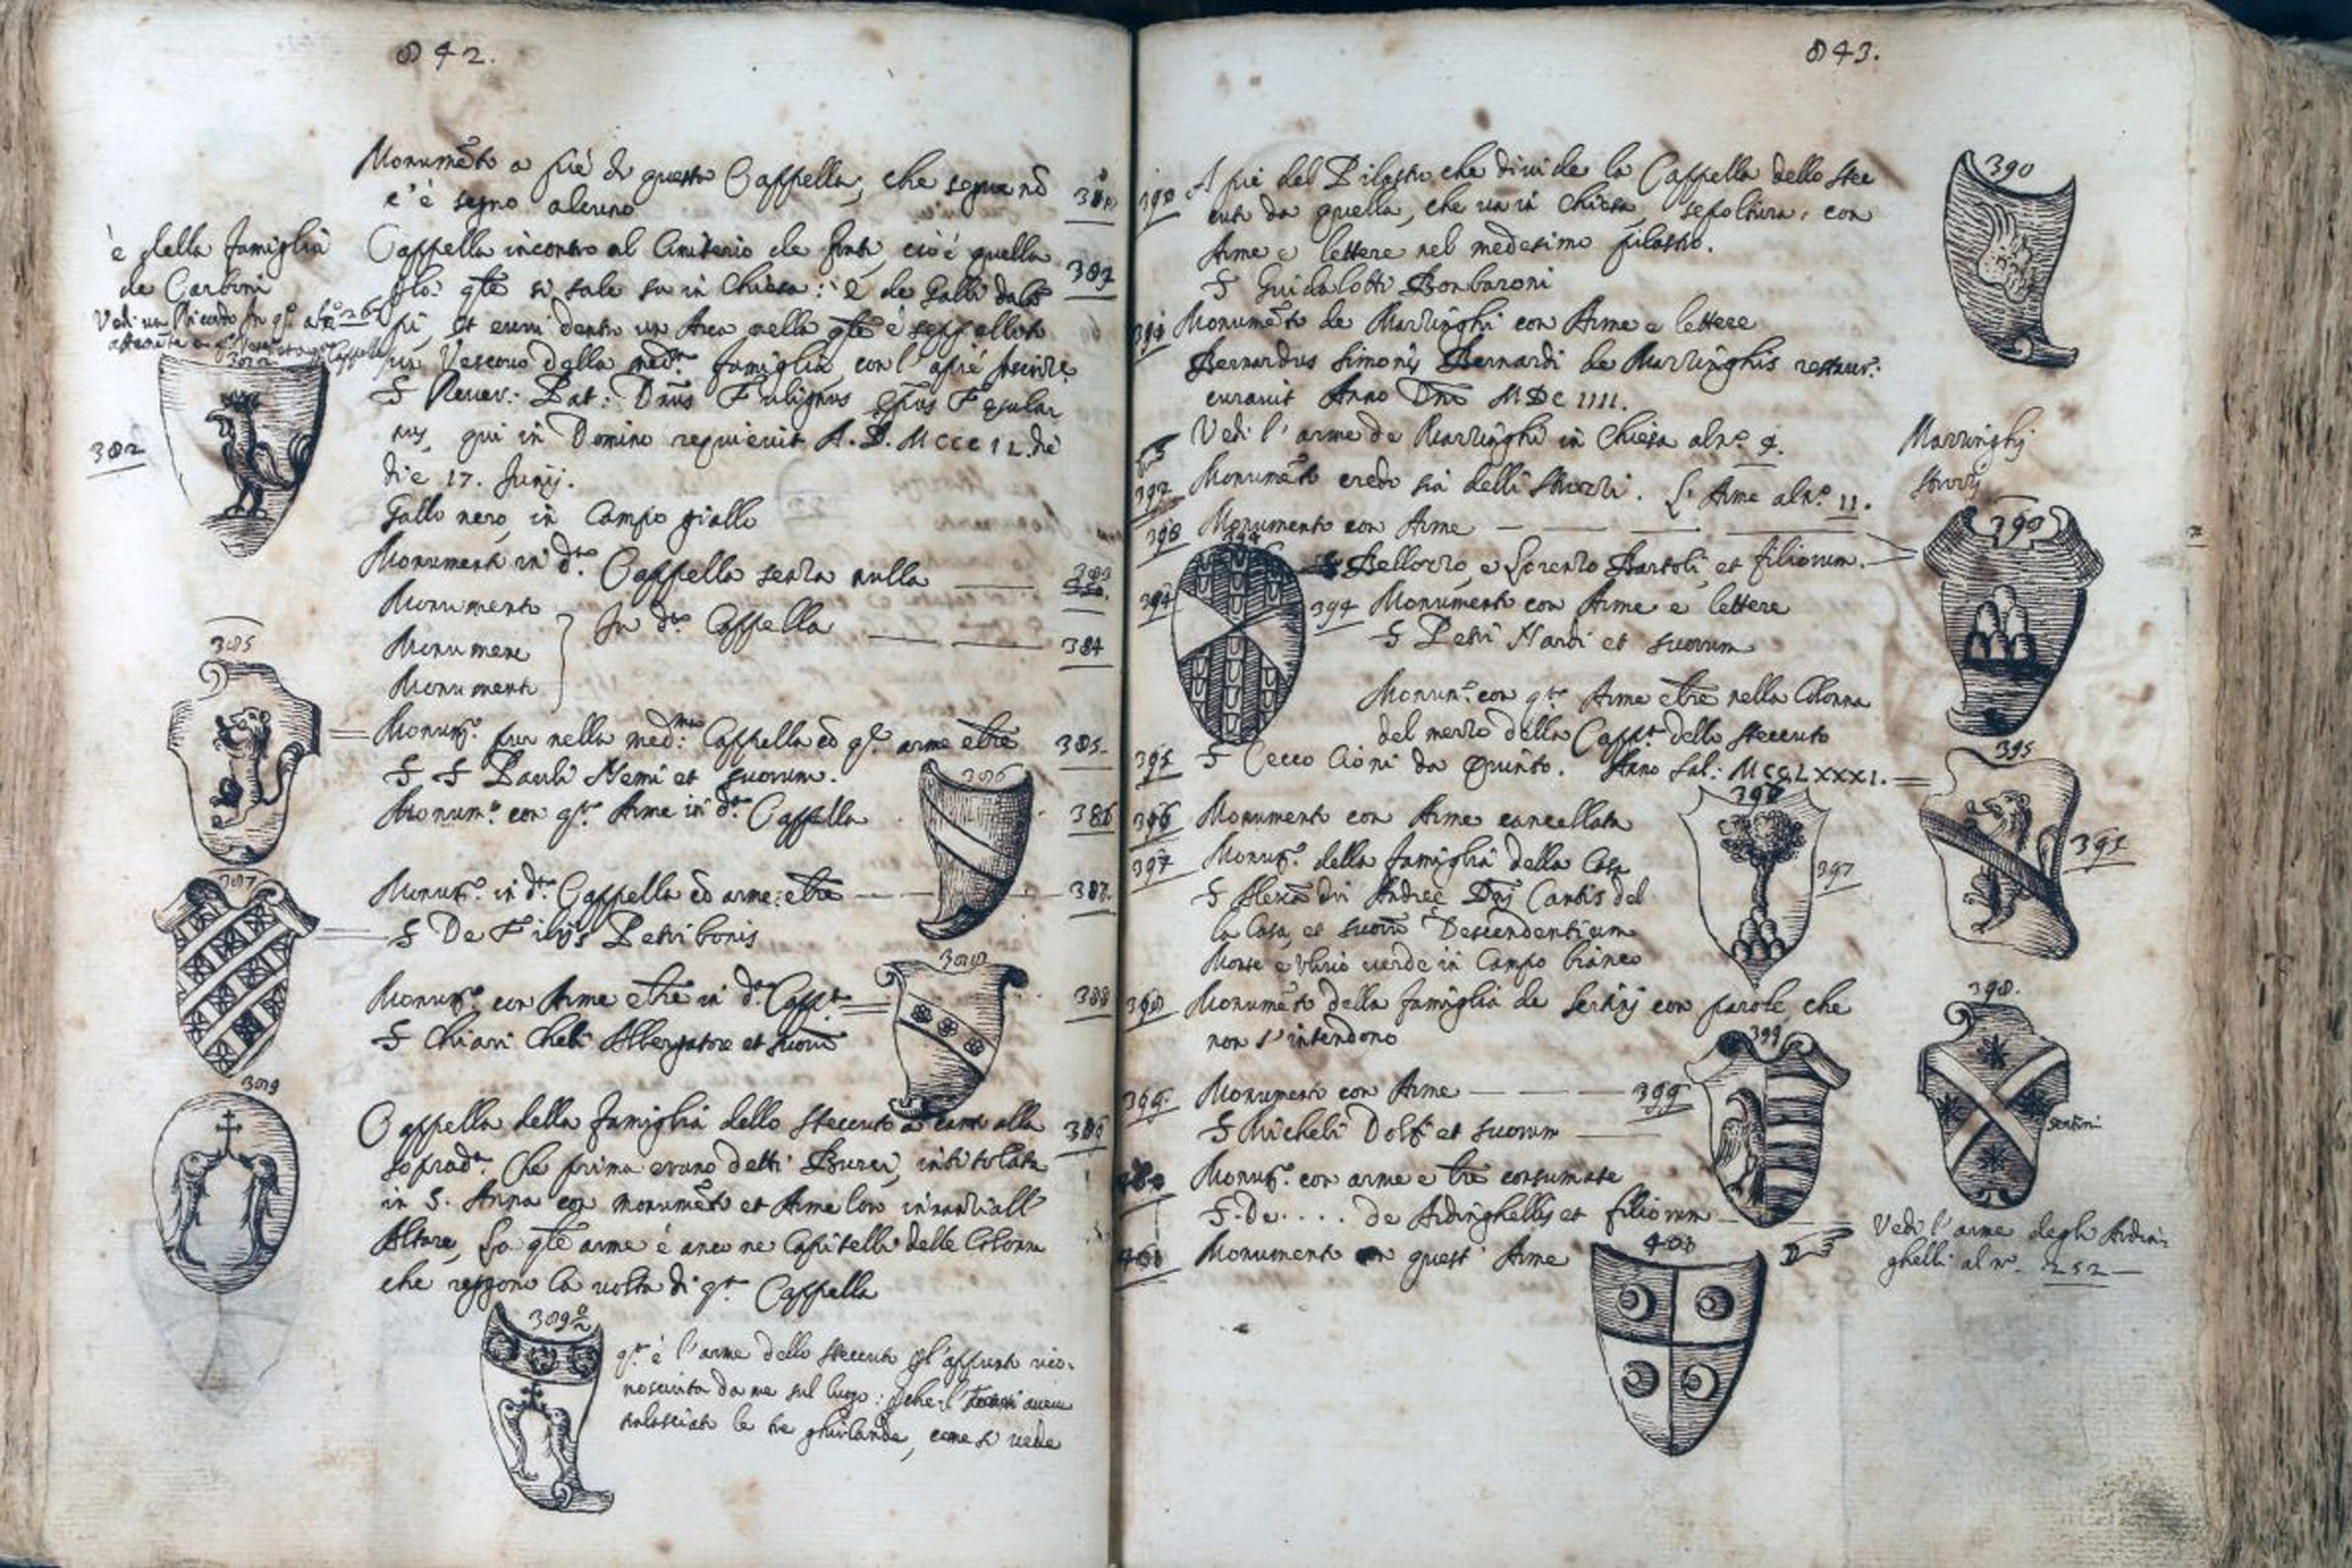 842.
Monumẽto a piè di questa Cappella, che segue nõ
c'è segno alcuno
381
è della famiglia
da Carbini
Vedi un Ricordo
382
382
Cappella incontro al Cimiterio de fonti, cioè quella
p la qle si sale su in Chiesa: è de Galli dalo
pi, et evvi dentro un Arca nella qle è seppellito
un Vescovo della medma famiglia, con l'apiè
S Rever: Pat: Dñus Fulignus Epus Fesulan
nus, qui in Domino requievit A. D. MCCC
die 17. Junij.
Gallo nero, in Campo giallo
Monumento in dta Cappella senza nulla
383
Monumento
Monumento
Monumento
In dta Cappella
384
385
Monumto pur nella medma Cappella cõ qta arme e lre
385.
S S Pauli Nemi et suorum.
Monumto con qta Arme in dta Cappella
386
386
387
Monumto in dta Cappella cõ arme: e lre
387.
S De Filijs Petribonis
388
Monumto con Arme e lre in dta Cappa
388
S Chiari Cheli Albergatore et suorũ
389
Cappella della famiglia dello Steccuto a canto alla
sopradta Che prima erano detti Burci, intitolata
in S. Anna con monumẽto et Arme loro innanzi all'
Altare, La qle arme è anco ne Capitelli delle Colonne
che reggono la volta di qta Cappella
389
389 2/2
qta è l'arme dello Steccuto
nosciuta da me sul luogo: perche il
tralasciato le tre ghirlande, come si vede
843.
390 A piè del Pilastro che divide la Cappella dello Stec
cuto da quella, che va in Chiesa, sepoltura, con
Arme e lettere nel medesimo pilastro.
S Guidalotti Bonbaroni
390
391 Monumẽto de Marzinghi con Arme e lettere
Bernardus Simonis Bernardi de Marzinghis restaur:
curavit Anno Dni MDCIIII.
Vedi l'arme de Marringhi in Chiesa al no 4.
Marringhj
392 Monumẽto credo sia delli Strozzi. L'Arme al no 11.
Strozzi
393 Monumento con Arme
393
S Bellozzo, e Lorenzo Bartoli, et filiorum.
394
394
394 Monumento con Arme e lettere
S Petri Nardi et suorum
Monumto con qta Arme e lre nella Colonna
del mezzo della Cappa dello Steccuto
395 S Cecco Cioni da Quinto. Anno Sal: MCCLXXXI.
395
395
396 Monumento con Arme cancellata
397 Monumto della famiglia della Casa
S Alexãdri Andree Dni Cantis del
la Casa, et suorũ Descendentium
Monte e Ulivo verde in Campo bianco
397
397
398 Monumẽto della famiglia de Sertinj con parole che
non s'intendono
398.
Sertini
399. Monumento con Arme 399
S Micheli Dolfi et suorum
399
400 Monumto con arme e lre consumate
S. De .... de Ardinghellis et filiorum
Vedi l'arme degli Ardin:
ghelli al no. 252
401 Monumento con quest' Arme
401